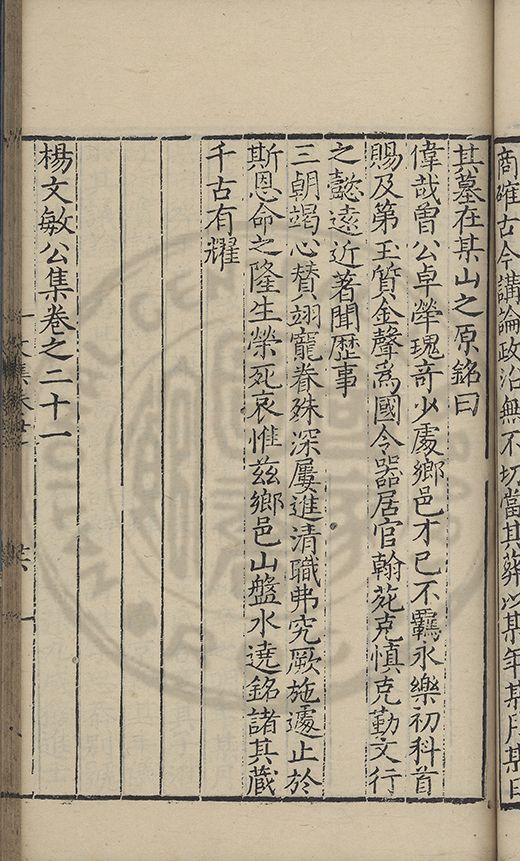 商確古今講論政治無不切當其葬以某年某月某日
其墓在某山之原銘曰
偉哉曾公卓犖瑰奇少處鄉邑才已不羈永樂初科首
賜及第玉質金聲爲國令器居官翰苑克慎克勤文行
之懿遠近著聞歷事
三朝竭心賛翊寵眷殊深屢進清職弗究厥施遽止於
斯恩命之隆生榮死哀惟兹鄉邑山盤水遶銘諸其藏
千古有耀
楊文敏公集卷之二十一